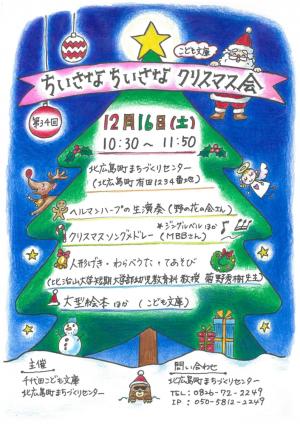 こども文庫
ちいさな ちいさな クリスマス会
第34回
12月16日(土)
10:30 ～ 11:50
北広島町まちづくりセンター
(北広島町有田1234番地)
ヘルマンハープの生演奏 (野の花の会さん)
*ジングルベル ほか
クリスマスソングメドレー (MBBさん)
人形げき・わらべうた・てあそび
(比治山大学短期大学部幼児教育科 教授 菊野秀樹先生)
大型絵本 ほか (こども文庫)
主催
千代田こども文庫
北広島町まちづくりセンター
問い合わせ
北広島町まちづくりセンター
TEL: 0826-72-2249
IP : 050-5812-2249